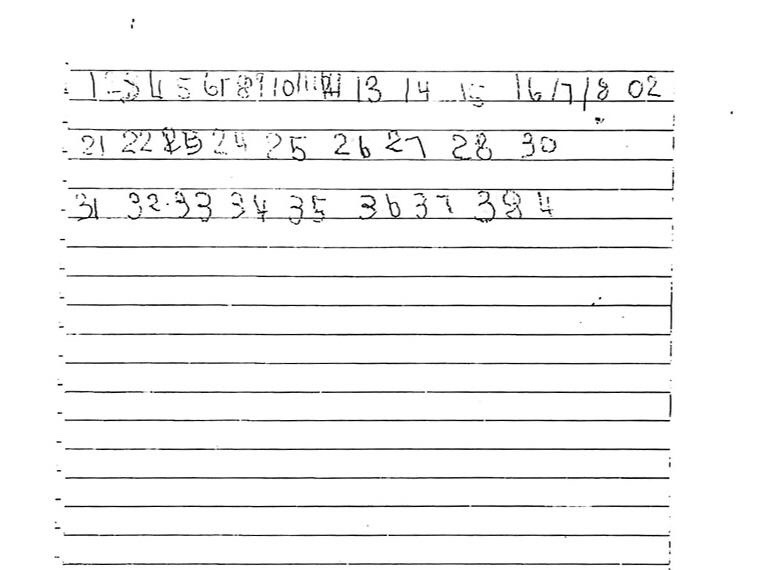 1 2 3 4 5 6 8 9 10 11 13 14 15 16 17 18 02
21 22 23 24 25 26 27 28 30
31 32 33 34 35 36 37 38 4